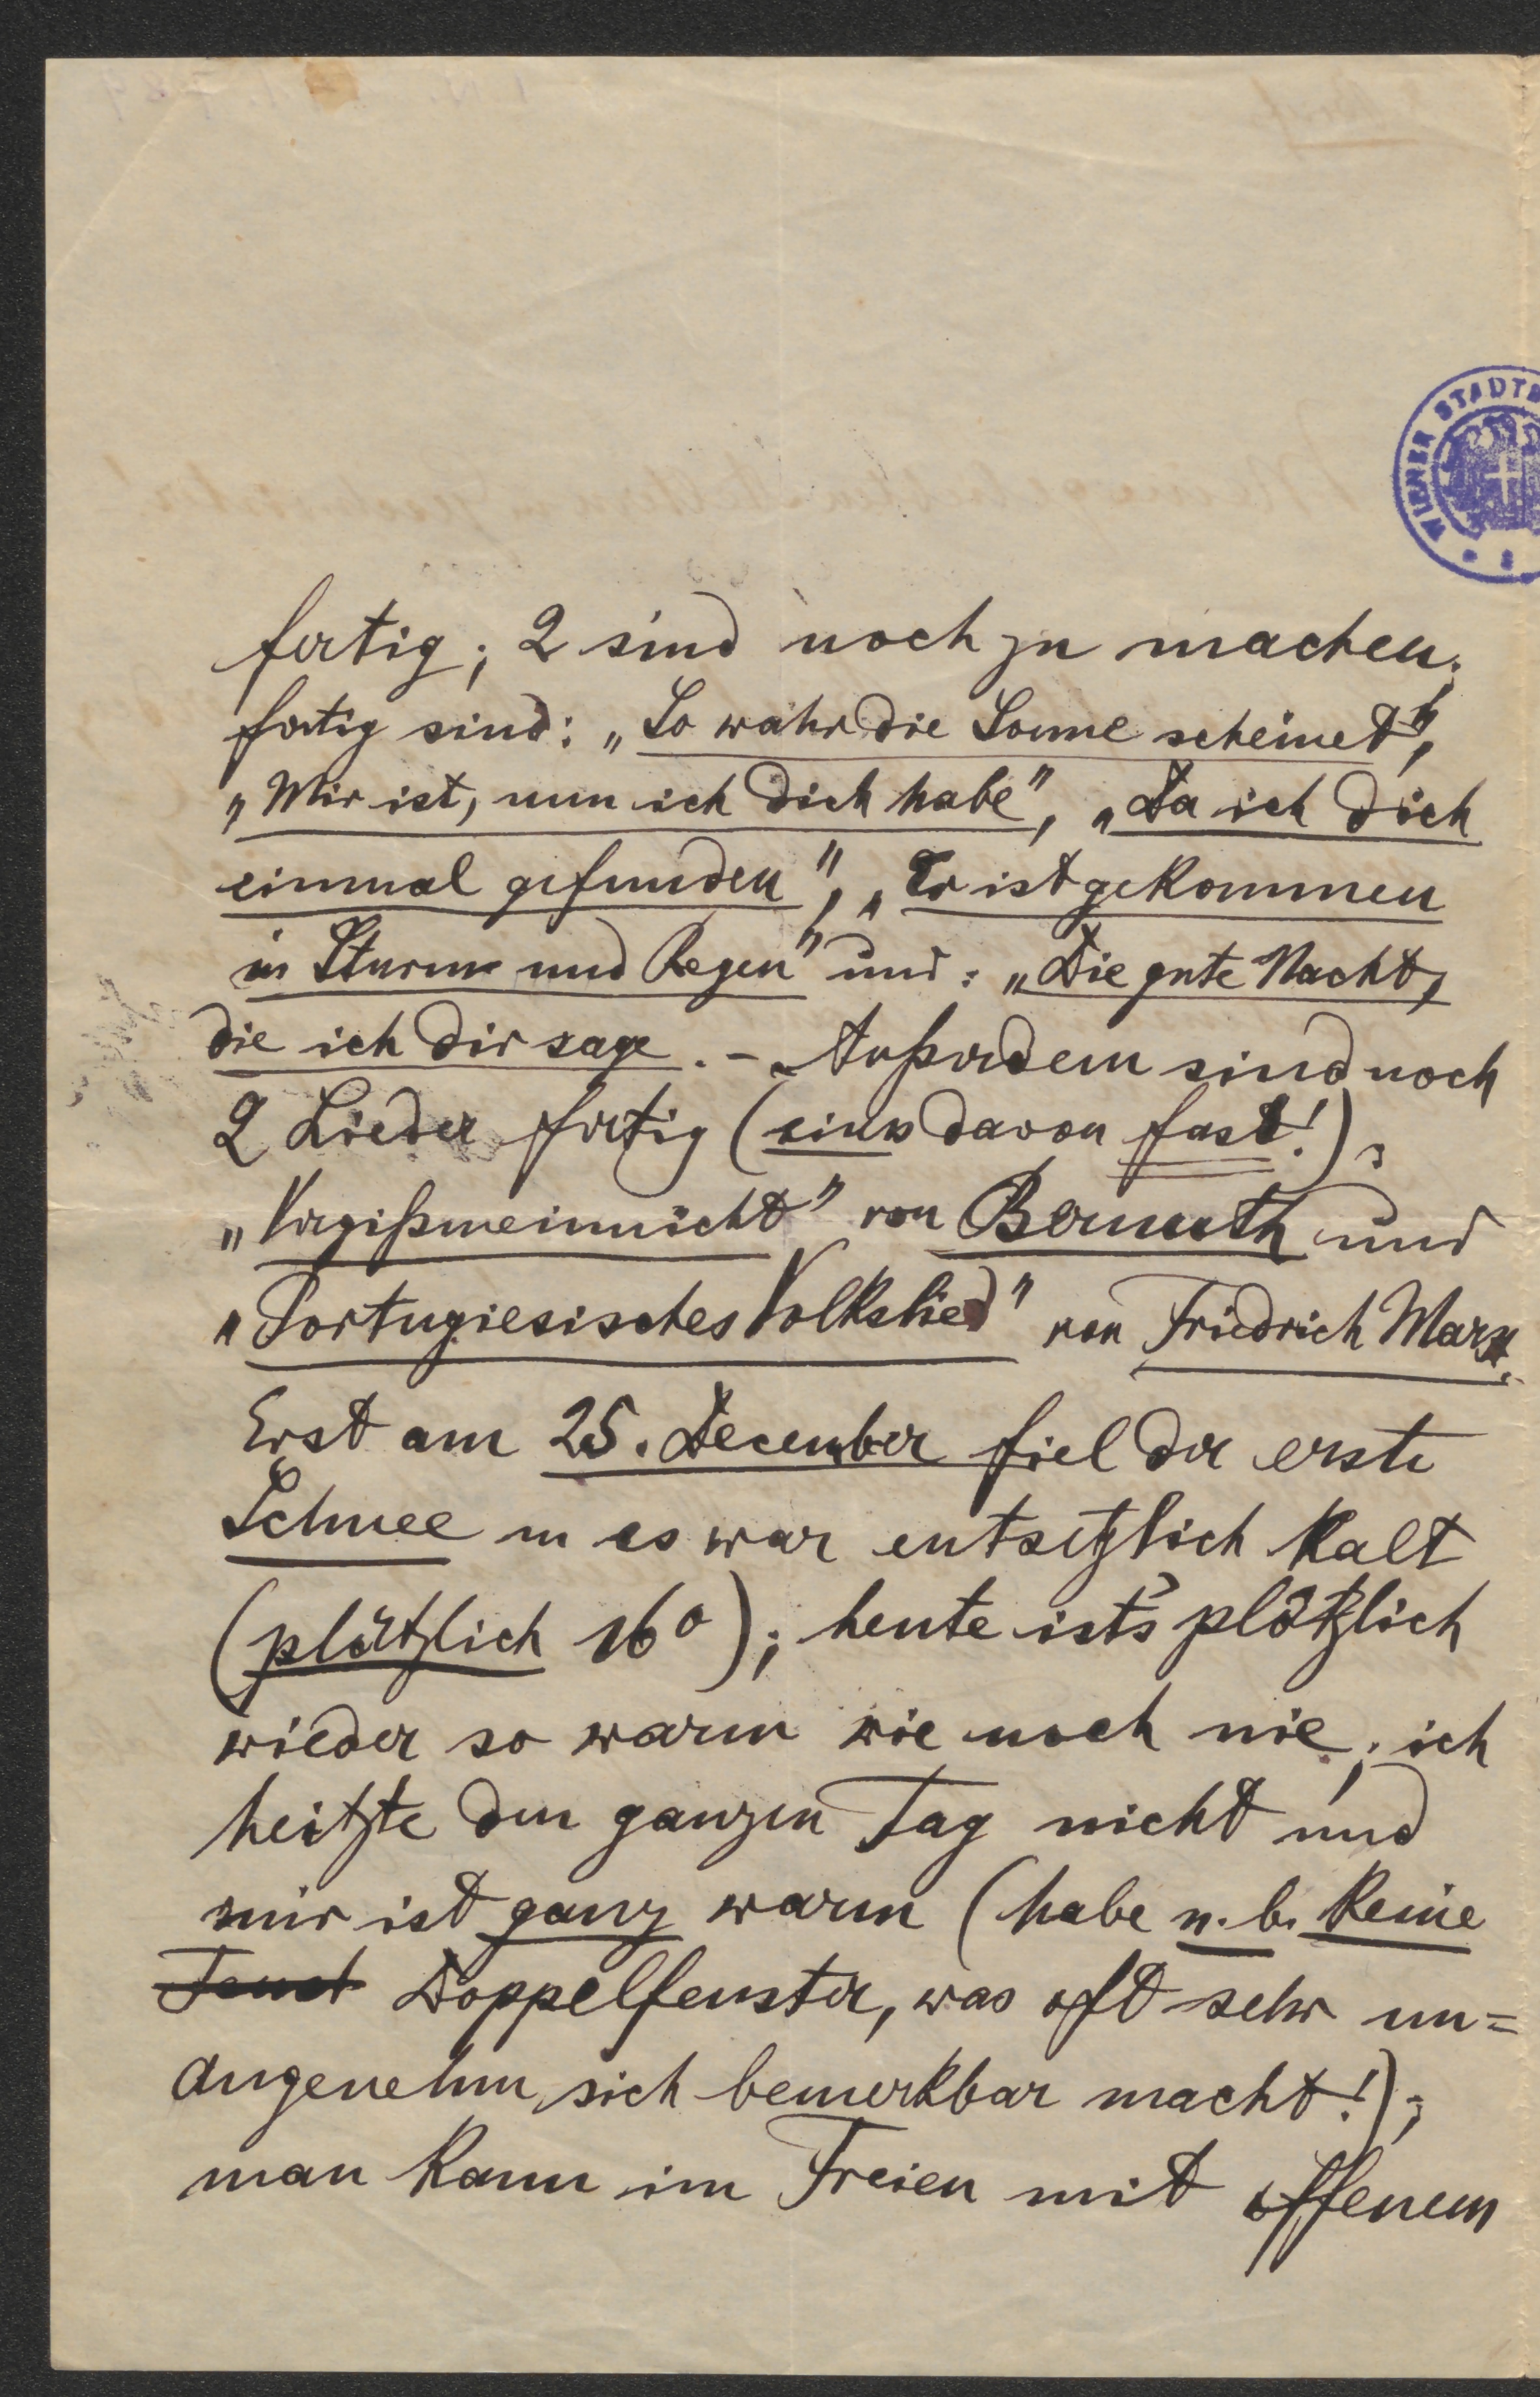 WIENER STADTB
fertig; 2 sind noch zu machen;
fertig sind: „So wahr die Sonne scheinet",
„Mir ist, nun ich dich habe", „Da ich dich
einmal gefunden", „Er ist gekommen
in Sturm und Regen" und: „Die gute Nacht,
die ich dir sage. - Außerdem sind noch
2 Lieder fertig (eins davon fast!);
„Vergißmeinnicht" von Bernuth und
„Portugiesisches Volkslied" von Friedrich Marx.
Erst am 25. December fiel der erste
Schnee u es war entsetzlich kalt
(plötzlich 16°); heute ist's plötzlich
wieder so warm wie noch nie; ich
heitzte den ganzen Tag nicht und
mir ist ganz warm (habe n.b. keine
Doppelfenster, was oft sehr un=
angenehm sich bemerkbar macht!);
man kann im Freien mit offenem